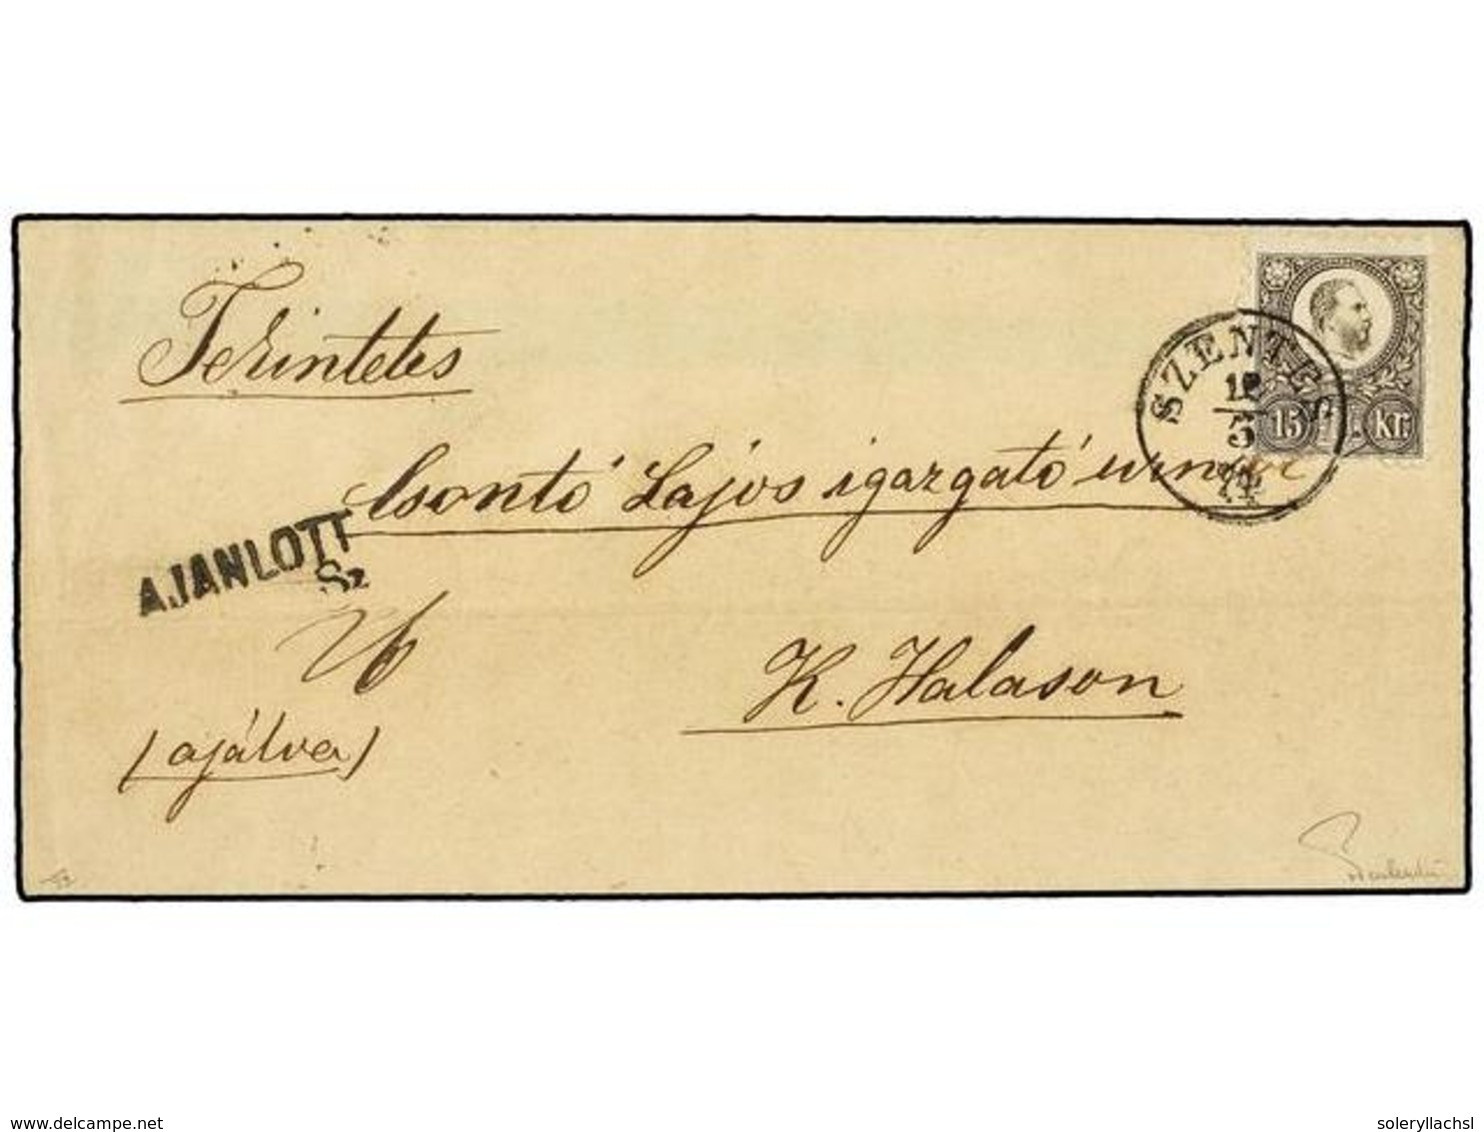 Tekintetes
SZENTES
12
5
74
15 KR.
Csontó Lajos igazgató urnak
AJANLOTT
Sz
26
K. Halason
(ajálva)
delcampe.net
soleryllachsl